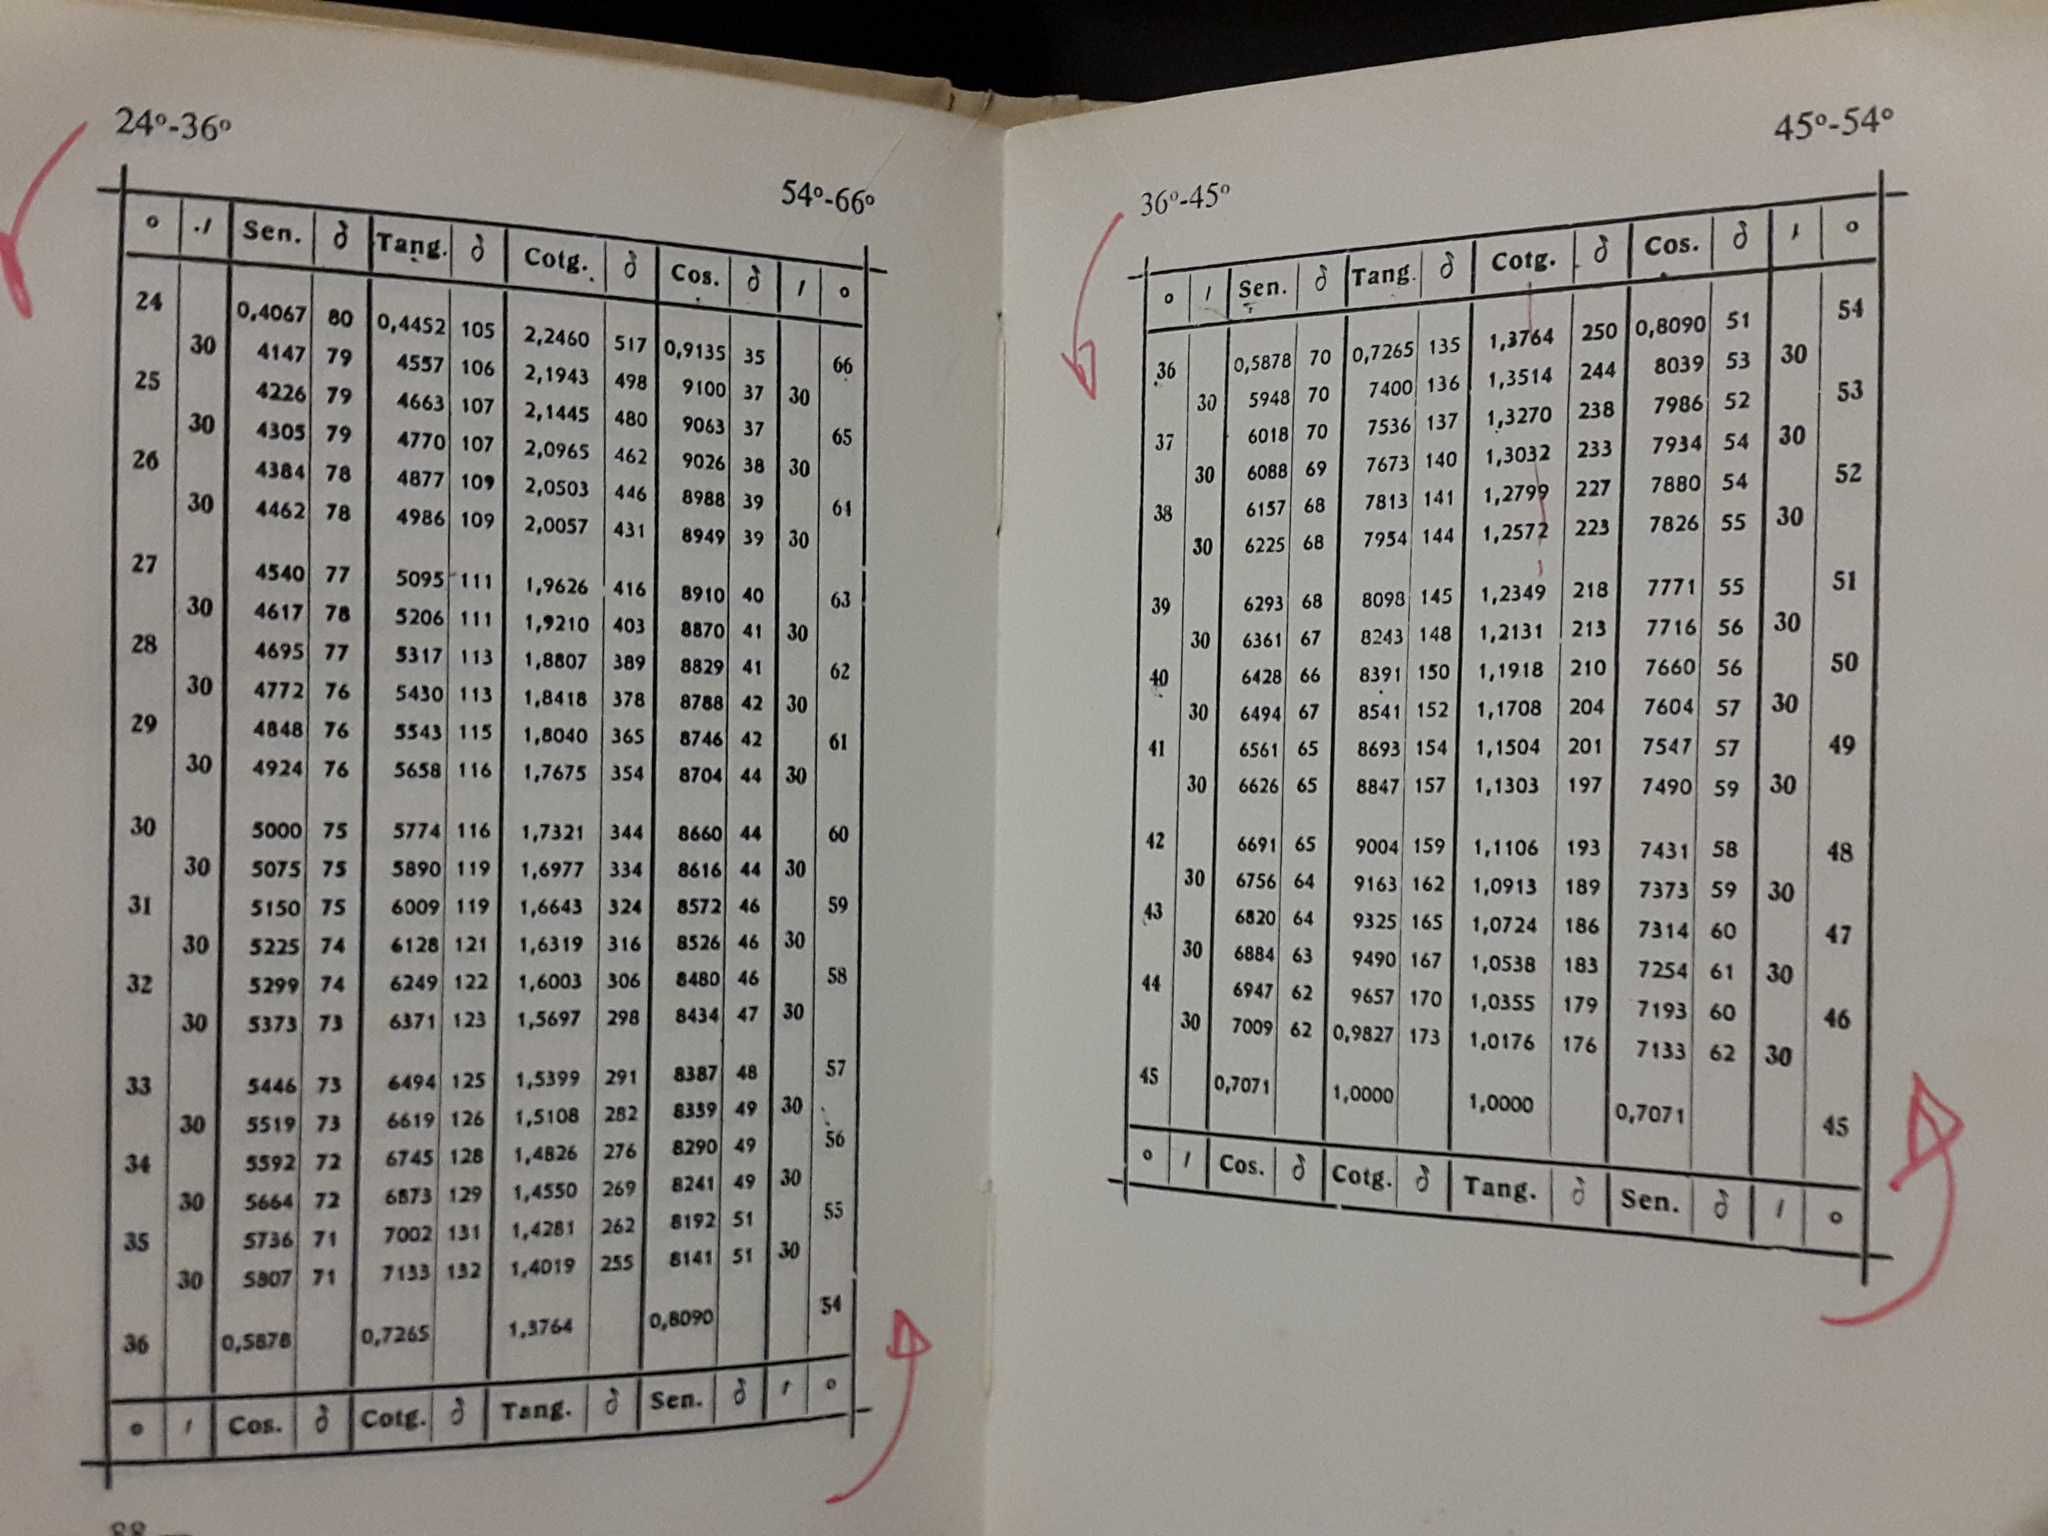 24°-36°
54°-66°
° ′ Sen. ∂ Tang. ∂ Cotg. ∂ Cos. ∂ ′ °
24 0,4067 80 0,4452 105 2,2460 517 0,9135 35 66
30 4147 79 4557 106 2,1943 498 9100 37 30
25 4226 79 4663 107 2,1445 480 9063 37 65
30 4305 79 4770 107 2,0965 462 9026 38 30
26 4384 78 4877 109 2,0503 446 8988 39 64
30 4462 78 4986 109 2,0057 431 8949 39 30
27 4540 77 5095 111 1,9626 416 8910 40 63
30 4617 78 5206 111 1,9210 403 8870 41 30
28 4695 77 5317 113 1,8807 389 8829 41 62
30 4772 76 5430 113 1,8418 378 8788 42 30
29 4848 76 5543 115 1,8040 365 8746 42 61
30 4924 76 5658 116 1,7675 354 8704 44 30
30 5000 75 5774 116 1,7321 344 8660 44 60
30 5075 75 5890 119 1,6977 334 8616 44 30
31 5150 75 6009 119 1,6643 324 8572 46 59
30 5225 74 6128 121 1,6319 316 8526 46 30
32 5299 74 6249 122 1,6003 306 8480 46 58
30 5373 73 6371 123 1,5697 298 8434 47 30
33 5446 73 6494 125 1,5399 291 8387 48 57
30 5519 73 6619 126 1,5108 282 8339 49 30
34 5592 72 6745 128 1,4826 276 8290 49 56
30 5664 72 6873 129 1,4550 269 8241 49 30
35 5736 71 7002 131 1,4281 262 8192 51 55
30 5807 71 7133 132 1,4019 255 8141 51 30
36 0,5878 0,7265 1,3764 0,8090 54
° ′ Cos. ∂ Cotg. ∂ Tang. ∂ Sen. ∂ ′ °
88 —
36°-45°
45°-54°
° ′ Sen. ∂ Tang. ∂ Cotg. ∂ Cos. ∂ ′ °
36 0,5878 70 0,7265 135 1,3764 250 0,8090 51 54
30 5948 70 7400 136 1,3514 244 8039 53 30
37 6018 70 7536 137 1,3270 238 7986 52 53
30 6088 69 7673 140 1,3032 233 7934 54 30
38 6157 68 7813 141 1,2799 227 7880 54 52
30 6225 68 7954 144 1,2572 223 7826 55 30
39 6293 68 8098 145 1,2349 218 7771 55 51
30 6361 67 8243 148 1,2131 213 7716 56 30
40 6428 66 8391 150 1,1918 210 7660 56 50
30 6494 67 8541 152 1,1708 204 7604 57 30
41 6561 65 8693 154 1,1504 201 7547 57 49
30 6626 65 8847 157 1,1303 197 7490 59 30
42 6691 65 9004 159 1,1106 193 7431 58 48
30 6756 64 9163 162 1,0913 189 7373 59 30
43 6820 64 9325 165 1,0724 186 7314 60 47
30 6884 63 9490 167 1,0538 183 7254 61 30
44 6947 62 9657 170 1,0355 179 7193 60 46
30 7009 62 0,9827 173 1,0176 176 7133 62 30
45 0,7071 1,0000 1,0000 0,7071 45
° ′ Cos. ∂ Cotg. ∂ Tang. ∂ Sen. ∂ ′ °